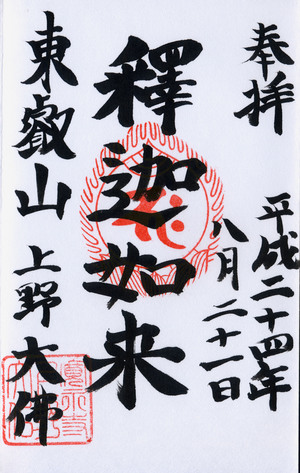 奉拝
平成二十四年
八月二十一日
釋迦如来
東叡山
上野大佛